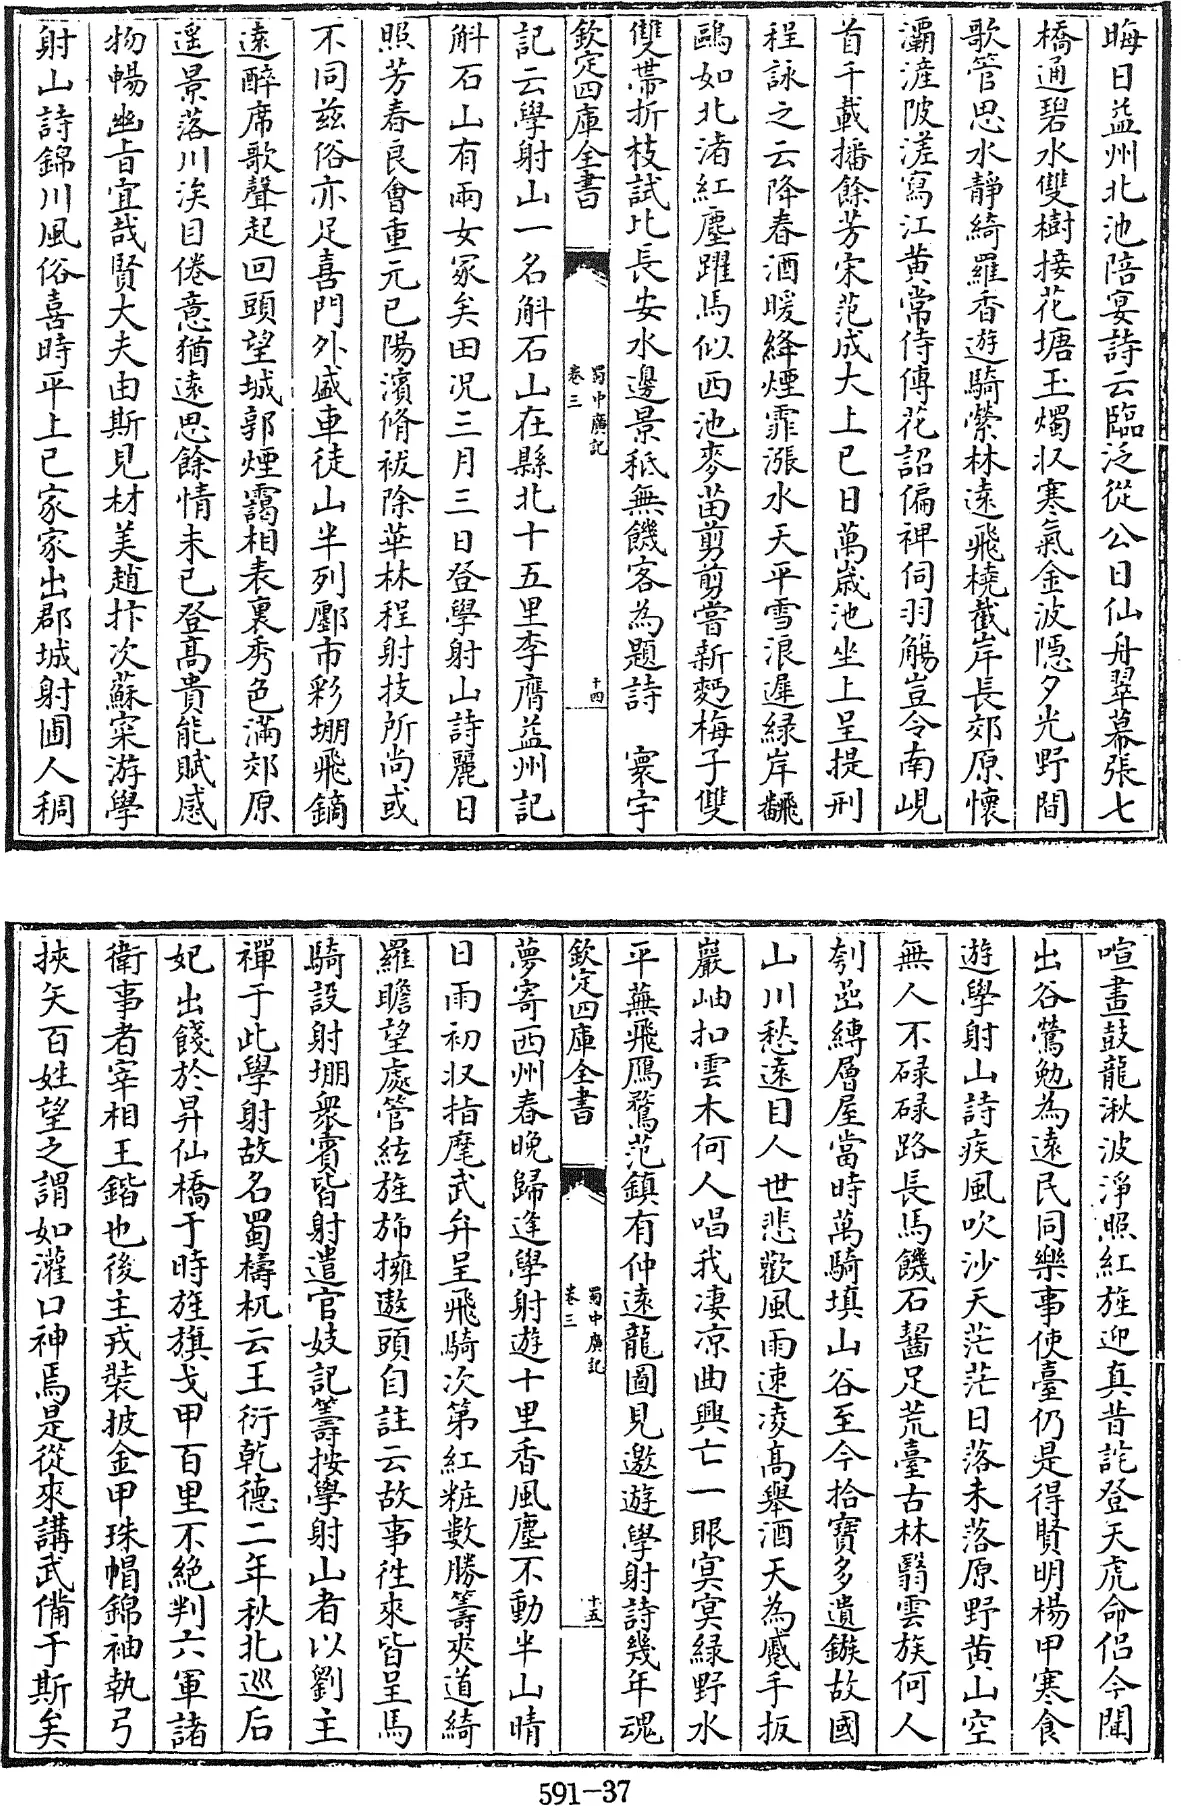 晦日益州北池陪宴詩云臨泛從公日仙舟翠幕張七
橋通碧水雙樹接花塘玉燭収寒氣金波隠夕光野閒
歌管思水靜綺羅香遊騎縈林遠飛橈截岸長郊原懷
灞滻陂溠寫江黄常侍傅花詔偏裨伺羽觴豈令南峴
首千載播餘芳宋范成大上巳日萬嵗池坐上呈提刑
程詠之云降春酒暖絳煙霏漲水天平雪浪遲緑岸翻
鷗如北渚紅塵躍馬似西池麥苗剪剪嘗新麪梅子雙
雙帶折枝試比長安水邊景秖無饑客為題詩 寰宇
欽定四庫全書
蜀中廣記
卷三
十四
記云學射山一名斛石山在縣北十五里李膺益州記
斛石山有兩女冢矣田况三月三日登學射山詩麗日
照芳春良會重元巳陽濱脩袚除華林程射技所尚或
不同兹俗亦足喜門外盛車徒山半列鄽市彩堋飛鏑
遠醉席歌聲起回頭望城郭煙靄相表裏秀色滿郊原
遥景落川涘目倦意猶遠思餘情未已登髙貴能賦感
物暢幽㫖宜哉賢大夫由斯見材美趙抃次蘇寀游學
射山詩錦川風俗喜時平上巳家家出郡城射圃人稠
喧畫鼓龍湫波淨照紅旌迎真昔詫登天虎命侣今聞
出谷鶯勉為遠民同樂事使臺仍是得賢明楊甲寒食
遊學射山詩疾風吹沙天茫茫日落未落原野黄山空
無人不碌碌路長馬饑石齧足荒臺古林翳雲族何人
刳茁縛層屋當時萬騎填山谷至今拾寶多遺鏃故國
山川愁遠目人世悲歡風雨速凌髙舉酒天為慼手扳
巖岫扣雲木何人唱我凄凉曲興亡一眼㝠㝠緑野水
平蕪飛鴈鶩范鎮有仲遠龍圖見邀遊學射詩幾年魂
欽定四庫全書
蜀中廣記
卷三
十五
夢寄西州春晚歸逢學射遊十里香風塵不動半山晴
日雨初収指麾武弁呈飛騎次第紅粧數勝籌夾道綺
羅瞻望處管絃旌斾擁遨頭自註云故事徃來皆呈馬
騎設射堋衆賓皆射遣官妓記籌按學射山者以劉主
禪于此學射故名蜀檮杌云王衍乾德二年秋北巡后
妃出餞於昇仙橋于時旌旗戈甲百里不絶判六軍諸
衛事者宰相王鍇也後主戎裝披金甲珠帽錦袖執弓
挾矢百姓望之謂如灌口神焉是從來講武備于斯矣
591-37